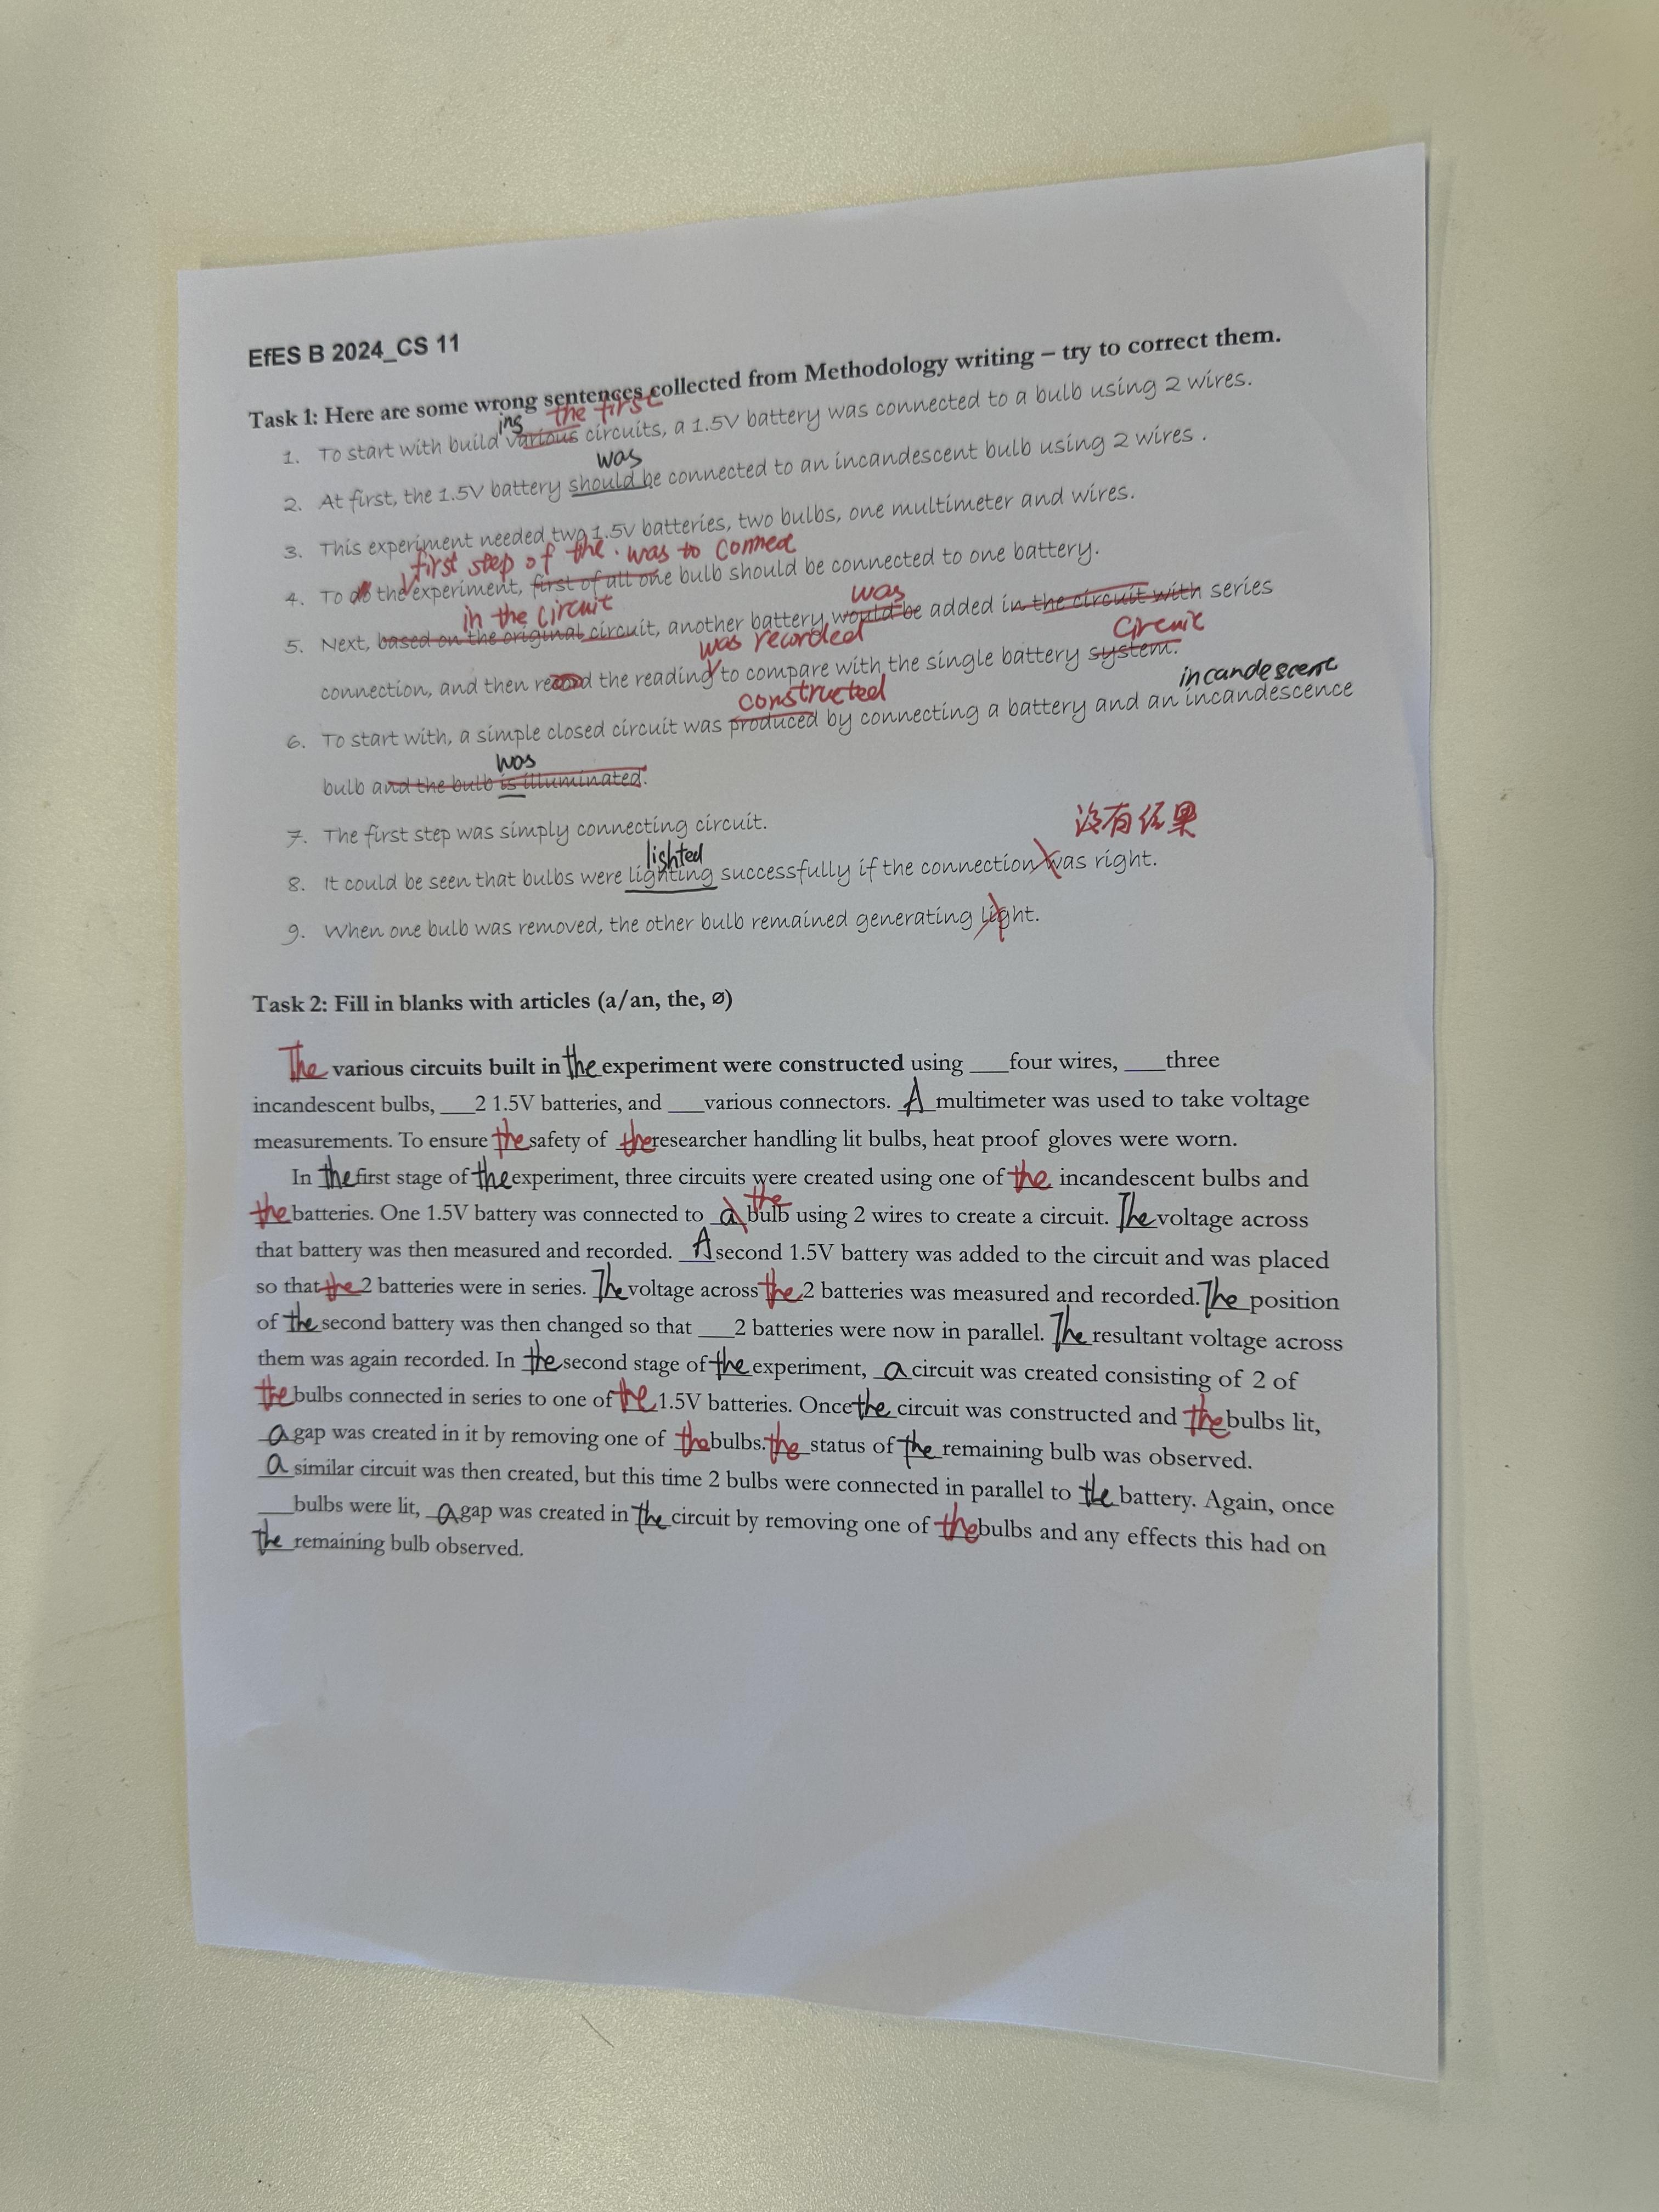 EfES B 2024_CS 11
Task 1: Here are some wrong sentences collected from Methodology writing – try to correct them.
ing the first
1. To start with build various circuits, a 1.5V battery was connected to a bulb using 2 wires.
was
2. At first, the 1.5V battery should be connected to an incandescent bulb using 2 wires .
3. This experiment needed two 1.5V batteries, two bulbs, one multimeter and wires.
first step of the . was to connect
4. To do the experiment, first of all one bulb should be connected to one battery.
in the circuit was
5. Next, based on the original circuit, another battery would be added in the circuit with series
was recorded circuit
connection, and then record the reading to compare with the single battery system.
constructed incandescent
6. To start with, a simple closed circuit was produced by connecting a battery and an incandescence
was
bulb and the bulb is illuminated.
7. The first step was simply connecting circuit.
没有结果
lighted
8. It could be seen that bulbs were lighting successfully if the connection was right.
9. When one bulb was removed, the other bulb remained generating light.
Task 2: Fill in blanks with articles (a/an, the, ø)
The various circuits built in the experiment were constructed using ___four wires, ___three
incandescent bulbs, ___2 1.5V batteries, and ___various connectors. A multimeter was used to take voltage
measurements. To ensure the safety of the researcher handling lit bulbs, heat proof gloves were worn.
In the first stage of the experiment, three circuits were created using one of the incandescent bulbs and
the
the batteries. One 1.5V battery was connected to a bulb using 2 wires to create a circuit. The voltage across
that battery was then measured and recorded. A second 1.5V battery was added to the circuit and was placed
so that the 2 batteries were in series. The voltage across the 2 batteries was measured and recorded. The position
of the second battery was then changed so that ___2 batteries were now in parallel. The resultant voltage across
them was again recorded. In the second stage of the experiment, a circuit was created consisting of 2 of
the bulbs connected in series to one of the 1.5V batteries. Once the circuit was constructed and the bulbs lit,
a gap was created in it by removing one of the bulbs. the status of the remaining bulb was observed.
a similar circuit was then created, but this time 2 bulbs were connected in parallel to the battery. Again, once
___bulbs were lit, a gap was created in the circuit by removing one of the bulbs and any effects this had on
the remaining bulb observed.